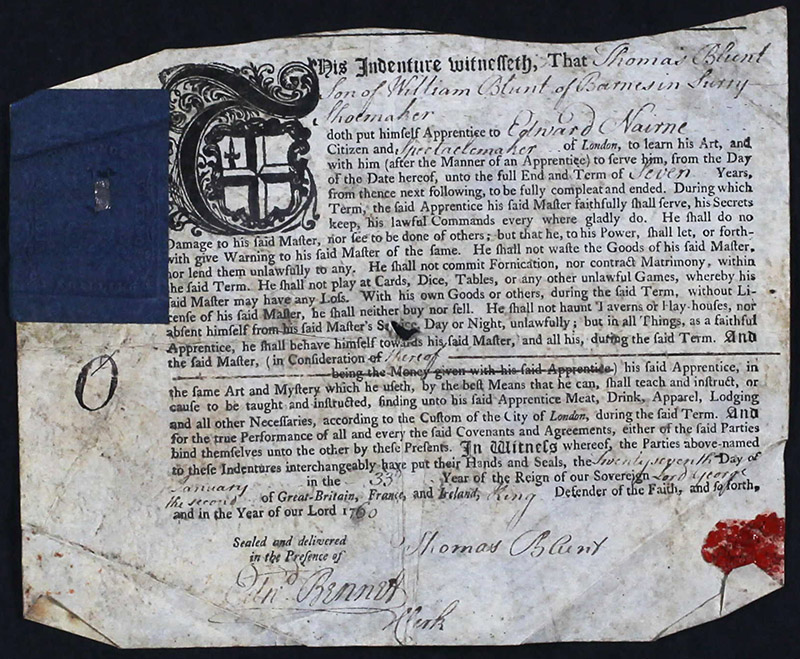 This Indenture witnesseth, That Thomas Blunt
Son of William Blunt of Barnes in Surry
Shoemaker
doth put himself Apprentice to Edward Nairne
Citizen and Spectaclemaker of London, to learn his Art, and
with him (after the Manner of an Apprentice) to serve him, from the Day
of the Date hereof, unto the full End and Term of Seven Years,
from thence next following, to be fully compleat and ended. During which
Term, the said Apprentice his said Master faithfully shall serve, his Secrets
keep, his lawful Commands every where gladly do. He shall do no
Damage to his said Master, nor see to be done of others; but that he, to his Power, shall let, or forth-
with give Warning to his said Master of the same. He shall not waste the Goods of his said Master,
nor lend them unlawfully to any. He shall not commit Fornication, nor contract Matrimony, within
the said Term. He shall not play at Cards, Dice, Tables, or any other unlawful Games, whereby his
said Master may have any Loss. With his own Goods or others, during the said Term, without Li-
cense of his said Master, he shall neither buy nor sell. He shall not haunt Taverns or Play-houses, nor
absent himself from his said Master's Service, Day or Night, unlawfully; but in all Things, as a faithful
Apprentice, he shall behave himself towards his said Master, and all his, during the said Term. And
the said Master, (in Consideration of thereof
being the Money given with his said Apprentice) his said Apprentice, in
the same Art and Mystery which he useth, by the best Means that he can, shall teach and instruct, or
O
cause to be taught and instructed, finding unto his said Apprentice Meat, Drink, Apparel, Lodging
and all other Necessaries, according to the Custom of the City of London, during the said Term. And
for the true Performance of all and every the said Covenants and Agreements, either of the said Parties
bind themselves unto the other by these Presents. In Witness whereof, the Parties above-named
to these Indentures interchangeably have put their Hands and Seals, the twenty seventh Day of
January in the 33d Year of the Reign of our Sovereign Lord George
the second of Great-Britain, France, and Ireland, King Defender of the Faith, and so forth,
and in the Year of our Lord 1760
Sealed and delivered
in the Presence of
Thomas Blunt
Edwd Bennet
Clerk